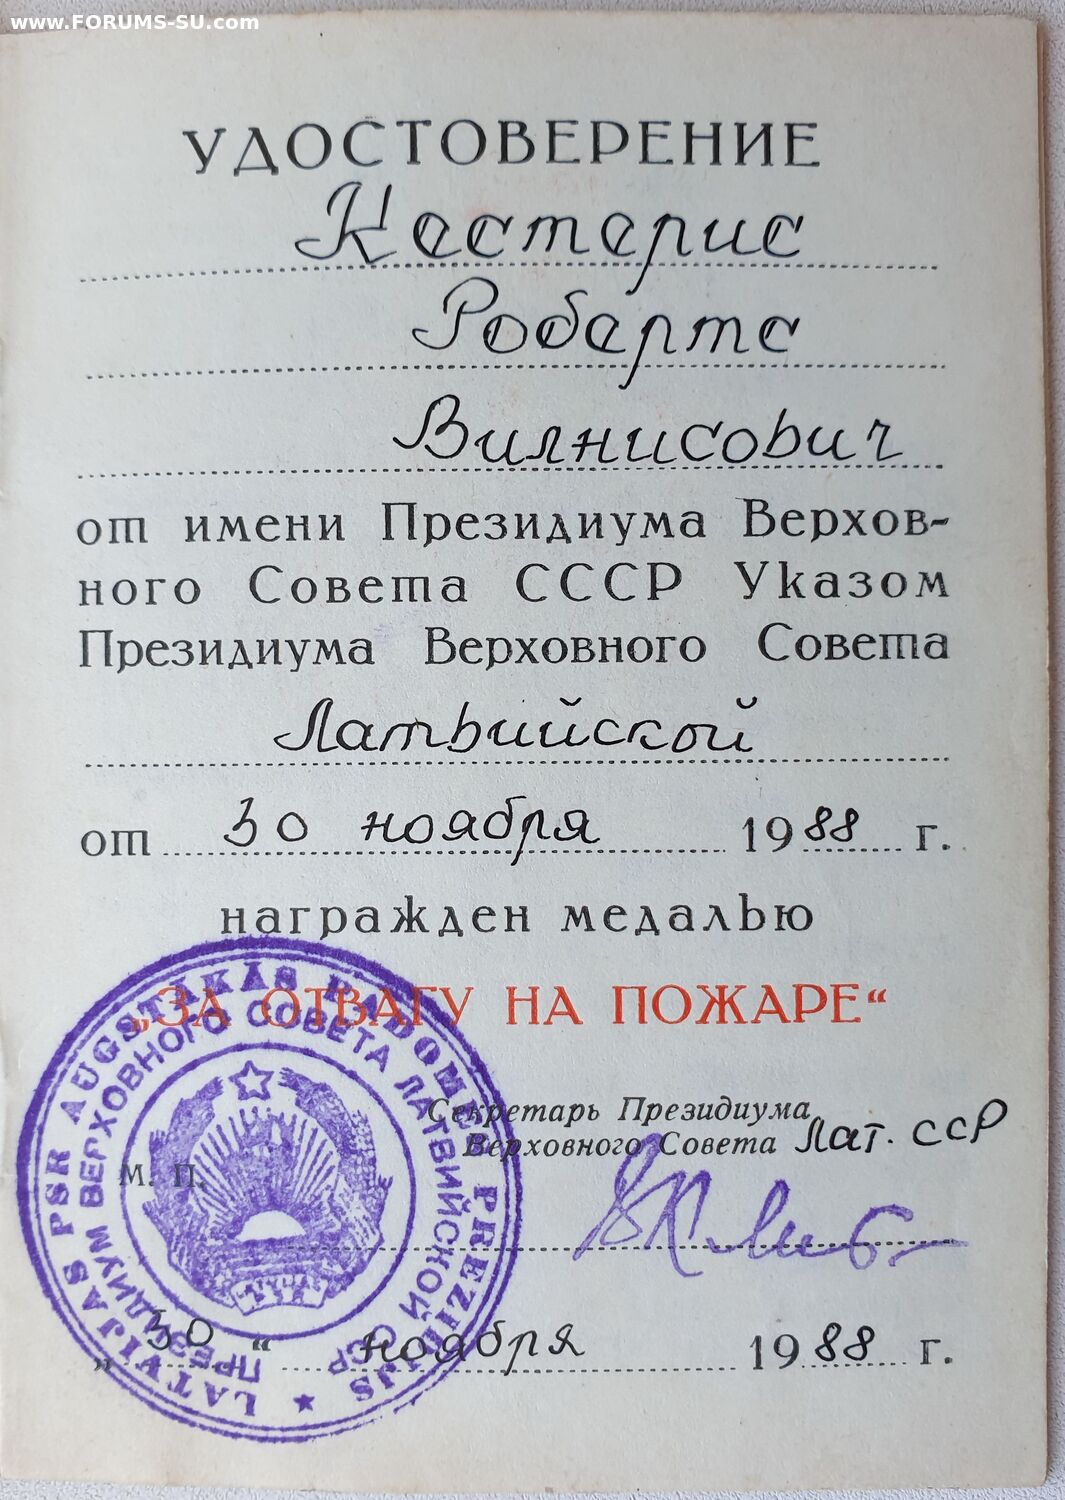 www.FORUMS-SU.com
УДОСТОВЕРЕНИЕ
Кестерис
Робертс
Вилнисович
от имени Президиума Верхов-
ного Совета СССР Указом
Президиума Верховного Совета
Латвийской
от 30 ноября 1988 г.
награжден медалью
„ЗА ОТВАГУ НА ПОЖАРЕ“
Секретарь Президиума
Верховного Совета Лат. ССР
М. П.
„30“ ноября 1988 г.
LATVIJAS PSR AUGSTĀKĀS PADOMES PREZIDIJS
ПРЕЗИДИУМ ВЕРХОВНОГО СОВЕТА ЛАТВИЙСКОЙ ССР